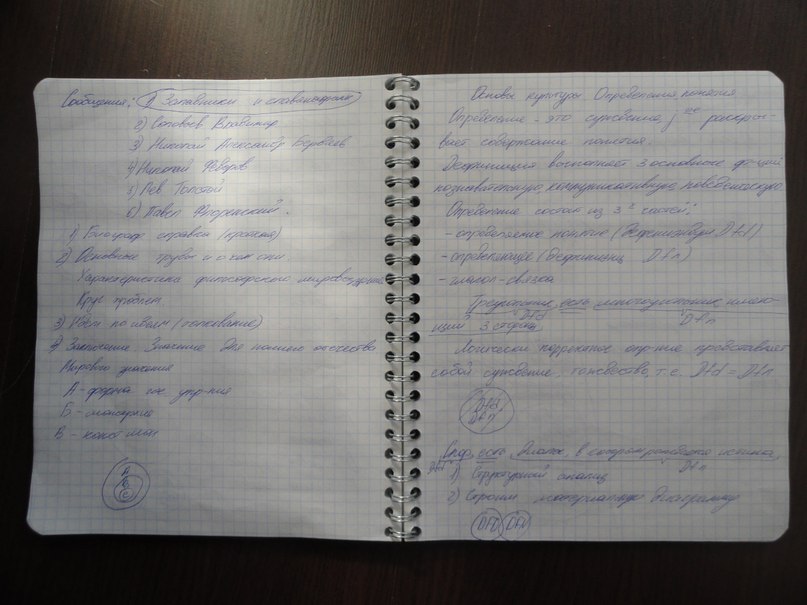 Сообщения: 1) Западники и славянофилы
2) Соловьев Владимир
3) Николай Александр Бердяев
4) Николай Федоров
5) Лев Толстой
6) Павел Флоренский.
1) Биограф. справка (краткая)
2) Основные труды и о чем они
Характеристика философского мировоззрения
Круг проблем
3) Работа (толкование)
4) Заключение. Значение для нашего отечества
Мирового
А - форма гос. упр-ния
Б - монархия
В - конст. мон
А
Б
С
Основы культуры. Определения понятия
Определение - это суждение, раскры-
вает содержание понятия.
Дефиниция выполняет 3 основные ф-ции
познавательную, коммуникативную, поведенческую
Определение состоит из 3х частей:
- определяемое понятие (дефиниендум Dfd)
- определяющее (дефиниенц Dfn)
- глагол-связка
Треугольник есть многоугольник, имею-
щий 3 стороны
Dfd
Dfn
Логически корректное опр-ние представляет
собой суждение тождества, т.е. Dfd = Dfn.
Dfd
Dfn
Спор есть диалог, в котором рождается истина
Dfd
Dfn
1) Структурный анализ
2) Строим диаграмму
Dfd Dfn